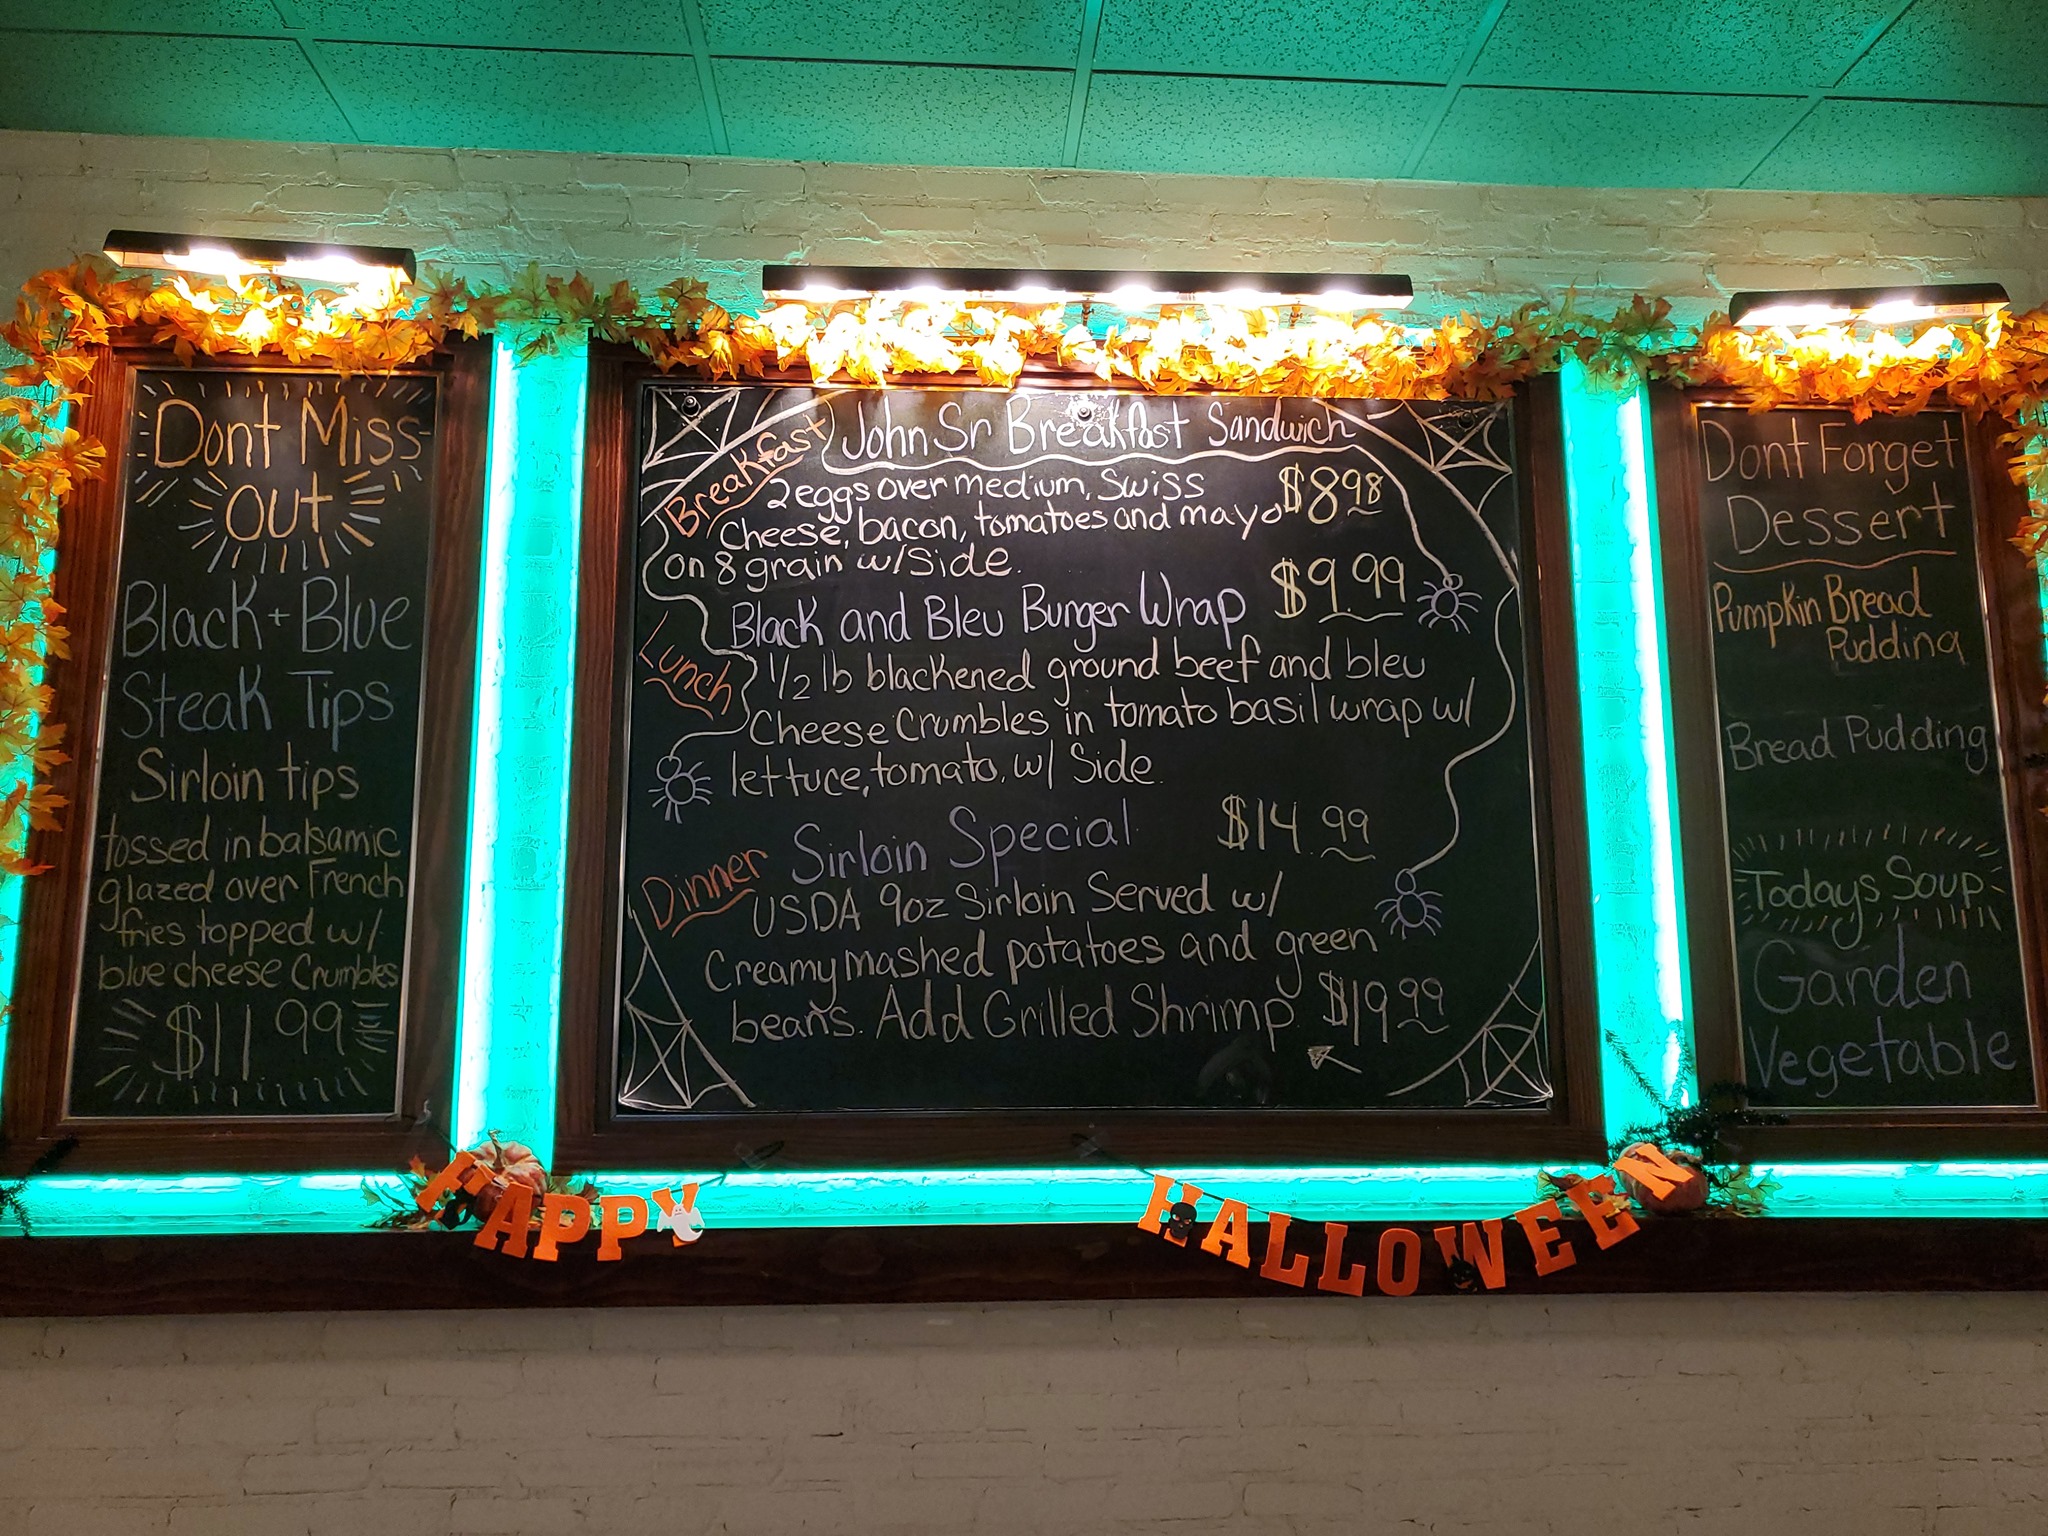 Dont Miss
OUT
Black + Blue
Steak Tips
Sirloin tips
tossed in balsamic
glazed over French
fries topped w/
blue cheese Crumbles
$11.99
Breakfast
John Sr Breakfast Sandwich
2 eggs over medium, Swiss $8.98
Cheese, bacon, tomatoes and mayo
on 8 grain w/ Side.
Lunch
Black and Bleu Burger Wrap $9.99
1/2 lb blackened ground beef and bleu
Cheese Crumbles in tomato basil wrap w/
lettuce, tomato, w/ Side.
Dinner
Sirloin Special $14.99
USDA 9oz Sirloin Served w/
Creamy mashed potatoes and green
beans. Add Grilled Shrimp $19.99
Dont Forget
Dessert
Pumpkin Bread
Pudding
Bread Pudding
Todays Soup
Garden
Vegetable
HAPPY HALLOWEEN